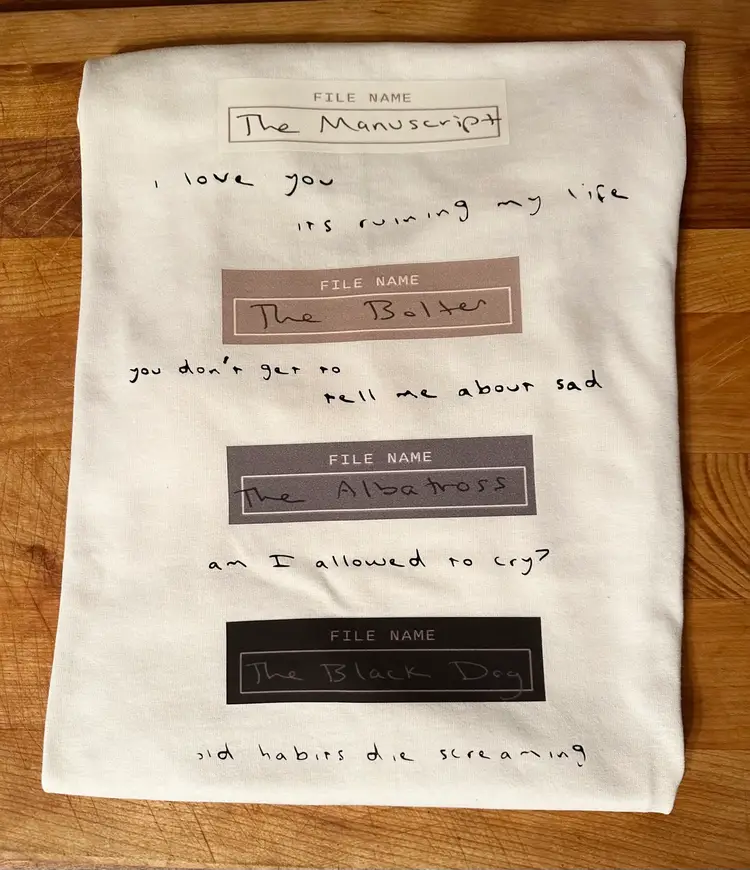 FILE NAME
The Manuscript
i love you
its ruining my life
FILE NAME
The Bolter
you don't get to
tell me about sad
FILE NAME
The Albatross
am I allowed to cry?
FILE NAME
The Black Dog
old habits die screaming